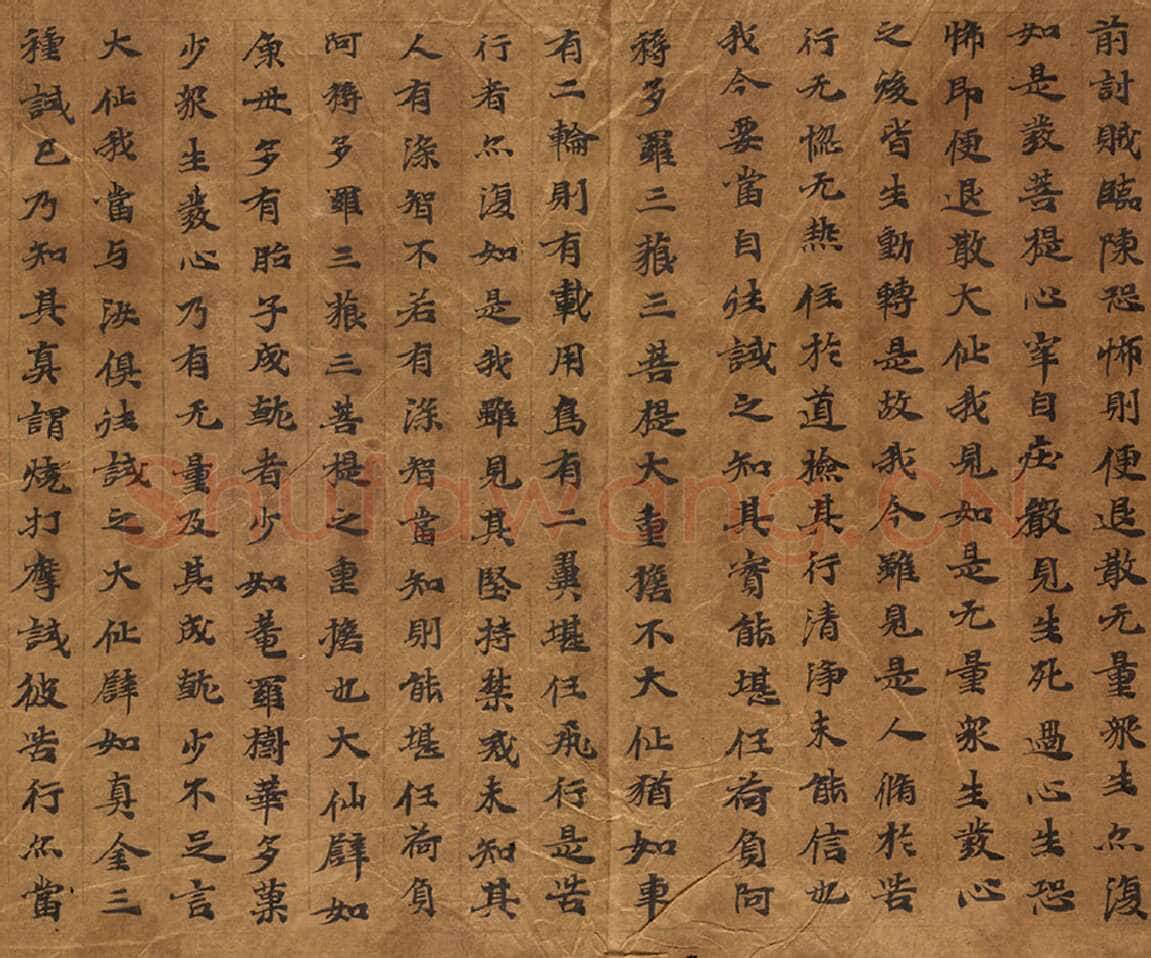 前討賊臨陳恐怖則便退散无量眾生亦復
如是發菩提心牢自庄嚴見生死過心生恐
怖即便退散大仙我見如是无量眾生發心
之後皆生動轉是故我今雖見是人脩於苦
行无惚无熱住於道撿其行清淨未能信也
我今要當自往試之知其實能堪任荷負阿
耨多羅三藐三菩提大重擔不大仙猶如車
有二輪則有載用鳥有二翼堪任飛行是苦
行者亦復如是我雖見其堅持禁戒未知其
人有深智不若有深智當知則能堪任荷負
阿耨多羅三藐三菩提之重擔也大仙辟如
魚母多有胎子成就者少如菴羅樹華多菓
少眾生發心乃有无量及其成就少不足言
大仙我當与汝俱往試之大仙辟如真金三
種試已乃知其真謂燒打摩試彼苦行亦當
shufawang.CN